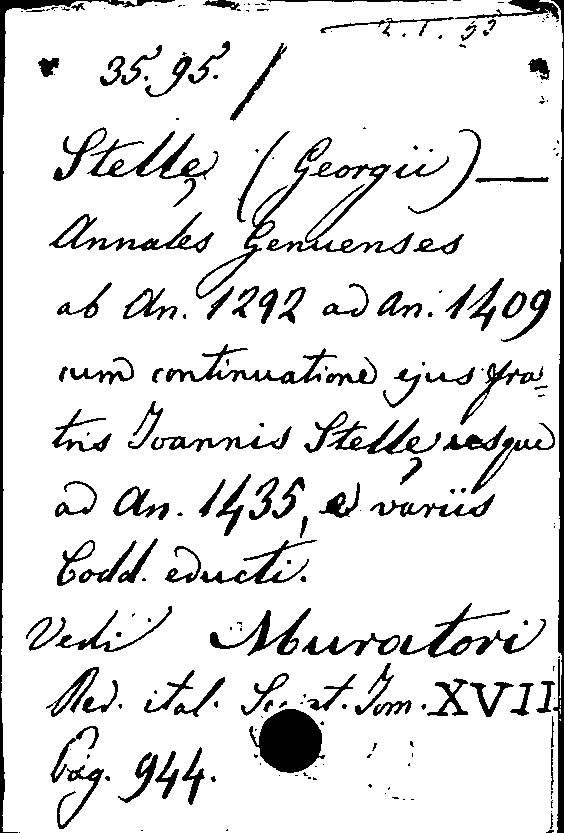 2.1.33
35.95. /
Stellę (Georgii) —
Annales Genuenses
ab An. 1292 ad An. 1409
cum continuatione ejus fra=
tris Joannis Stellę usque
ad An. 1435, e variis
Codd. educti.
Vedi Muratori
Rer. ital. Script. Tom. XVII
Pag. 944.